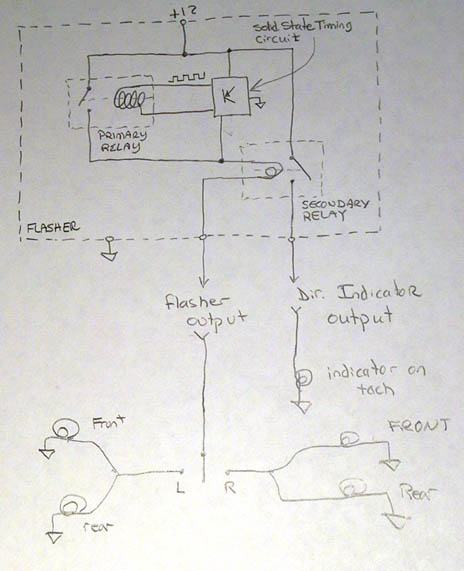 +12
Solid State Timing
Circuit
PRIMARY
RELAY
SECONDARY
RELAY
FLASHER
flasher
output
Dir. Indicator
output
indicator on
tach
Front
FRONT
L
R
rear
Rear